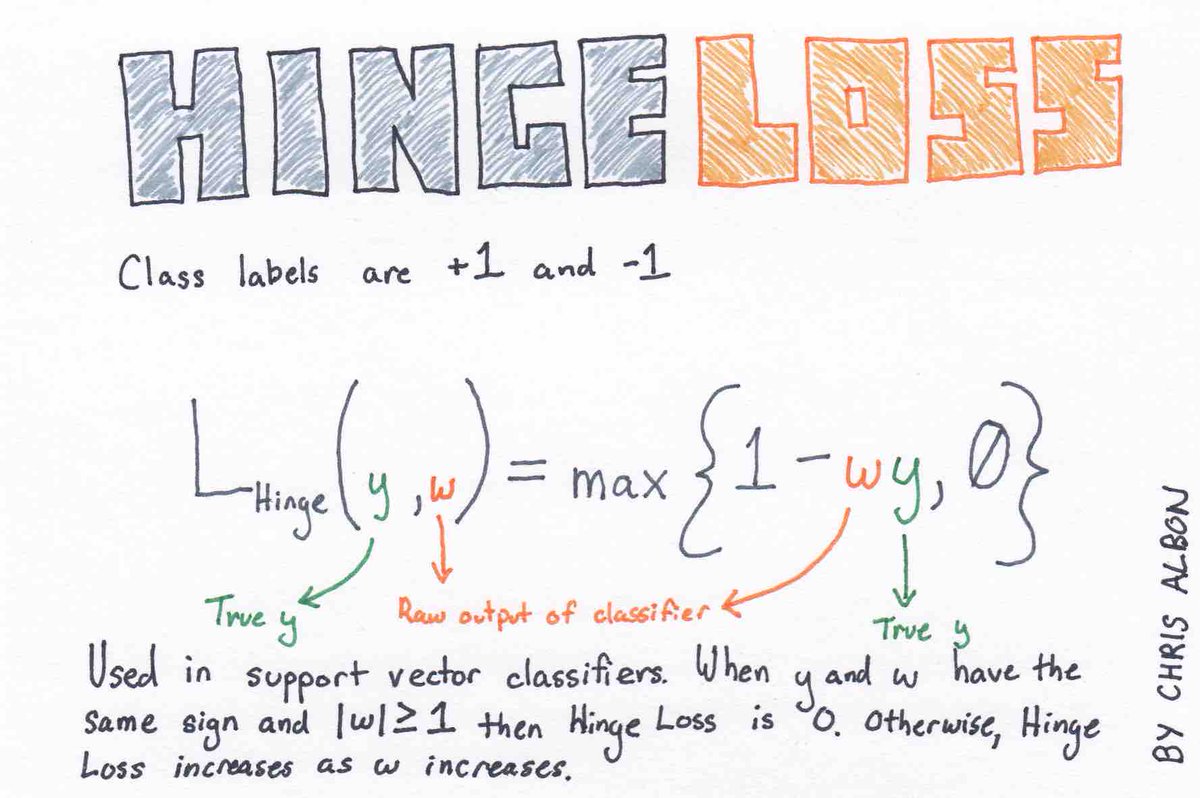 HINGE LOSS
Class labels are +1 and -1
L Hinge (y, w) = max {1 - wy, 0}
True y
Raw output of classifier
True y
Used in support vector classifiers. When y and w have the
same sign and |w| ≥ 1 then Hinge Loss is 0. Otherwise, Hinge
Loss increases as w increases.
BY CHRIS ALBON